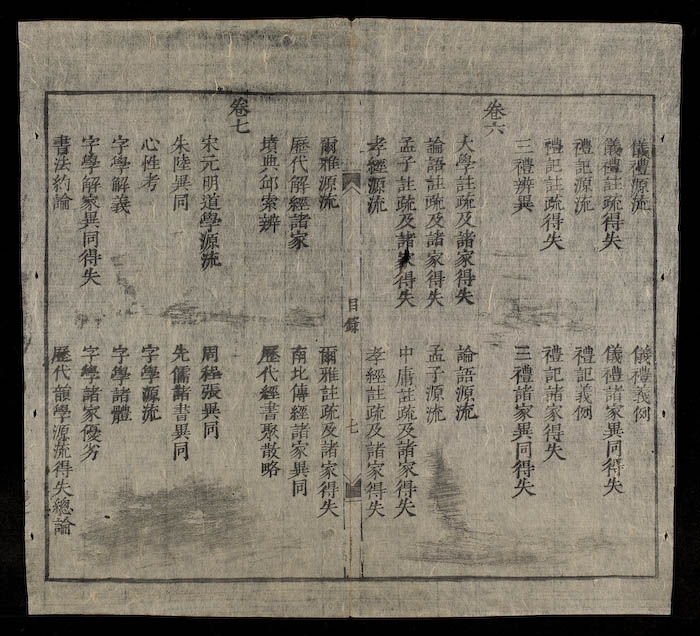 儀禮源流 儀禮義例
儀禮註疏得失 儀禮諸家異同得失
禮記源流 禮記義例
禮記註疏得失 禮記諸家得失
三禮辨異 三禮諸家異同得失
卷六
大學註疏及諸家得失 論語源流
論語註疏及諸家得失 孟子源流
孟子註疏及諸家得失 中庸註疏及諸家得失
孝經源流 孝經註疏及諸家得失
目錄 七
爾雅源流 爾雅註疏及諸家得失
歷代解經諸家 南北傳經諸家異同
墳典邱索辨 歷代經書聚散略
卷七
宋元明道學源流 周程張異同
朱陸異同 先儒諸書異同
心性考 字學源流
字學解義 字學諸體
字學解家異同得失 字學諸家優劣
書法約論 歷代韻學源流得失總論